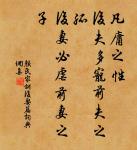 凡庸之性
後夫多寵前夫之
孤
後妻必虐前妻之
子
顏氏家訓後娶篇詞典
網集